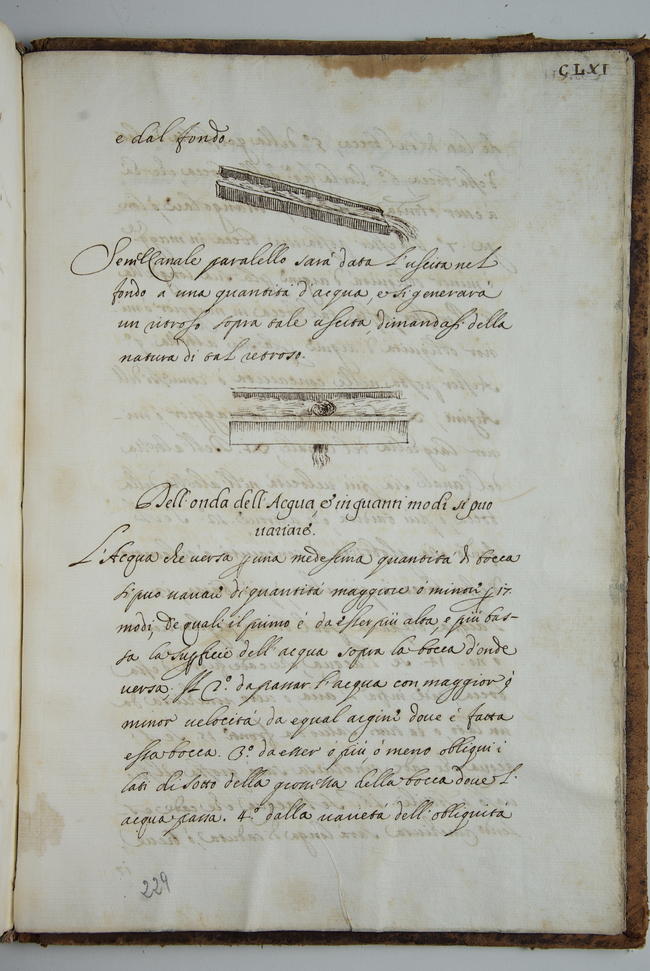 CLXI
e dal fondo
Se nel Canale paralello sarà data l'uscita nel
fondo à una quantità d'acqua, e si generarà
un ritroso sopra tale uscita, dimandasi della
natura di tal retroso.
Dell'onda dell'Acqua, e in quanti modi si può
variare.
L'Acqua che versa p una medesima quantità di bocca
si può variare di quantità maggiore ò minore p 17.
modi, De quali il primo é da esser più alta, e più bas-
sa la supficie dell'acqua sopra la bocca d'onde
versa; Il 2.º da passar l'acqua con maggior, ò
minor velocità da equal argine dove é fatta
essa bocca. 3.º da esser ò più ò meno obliqui i
lati di sotto della grossezza della bocca dove l'
acqua passa. 4.º dalla varietà dell'obliquità
229